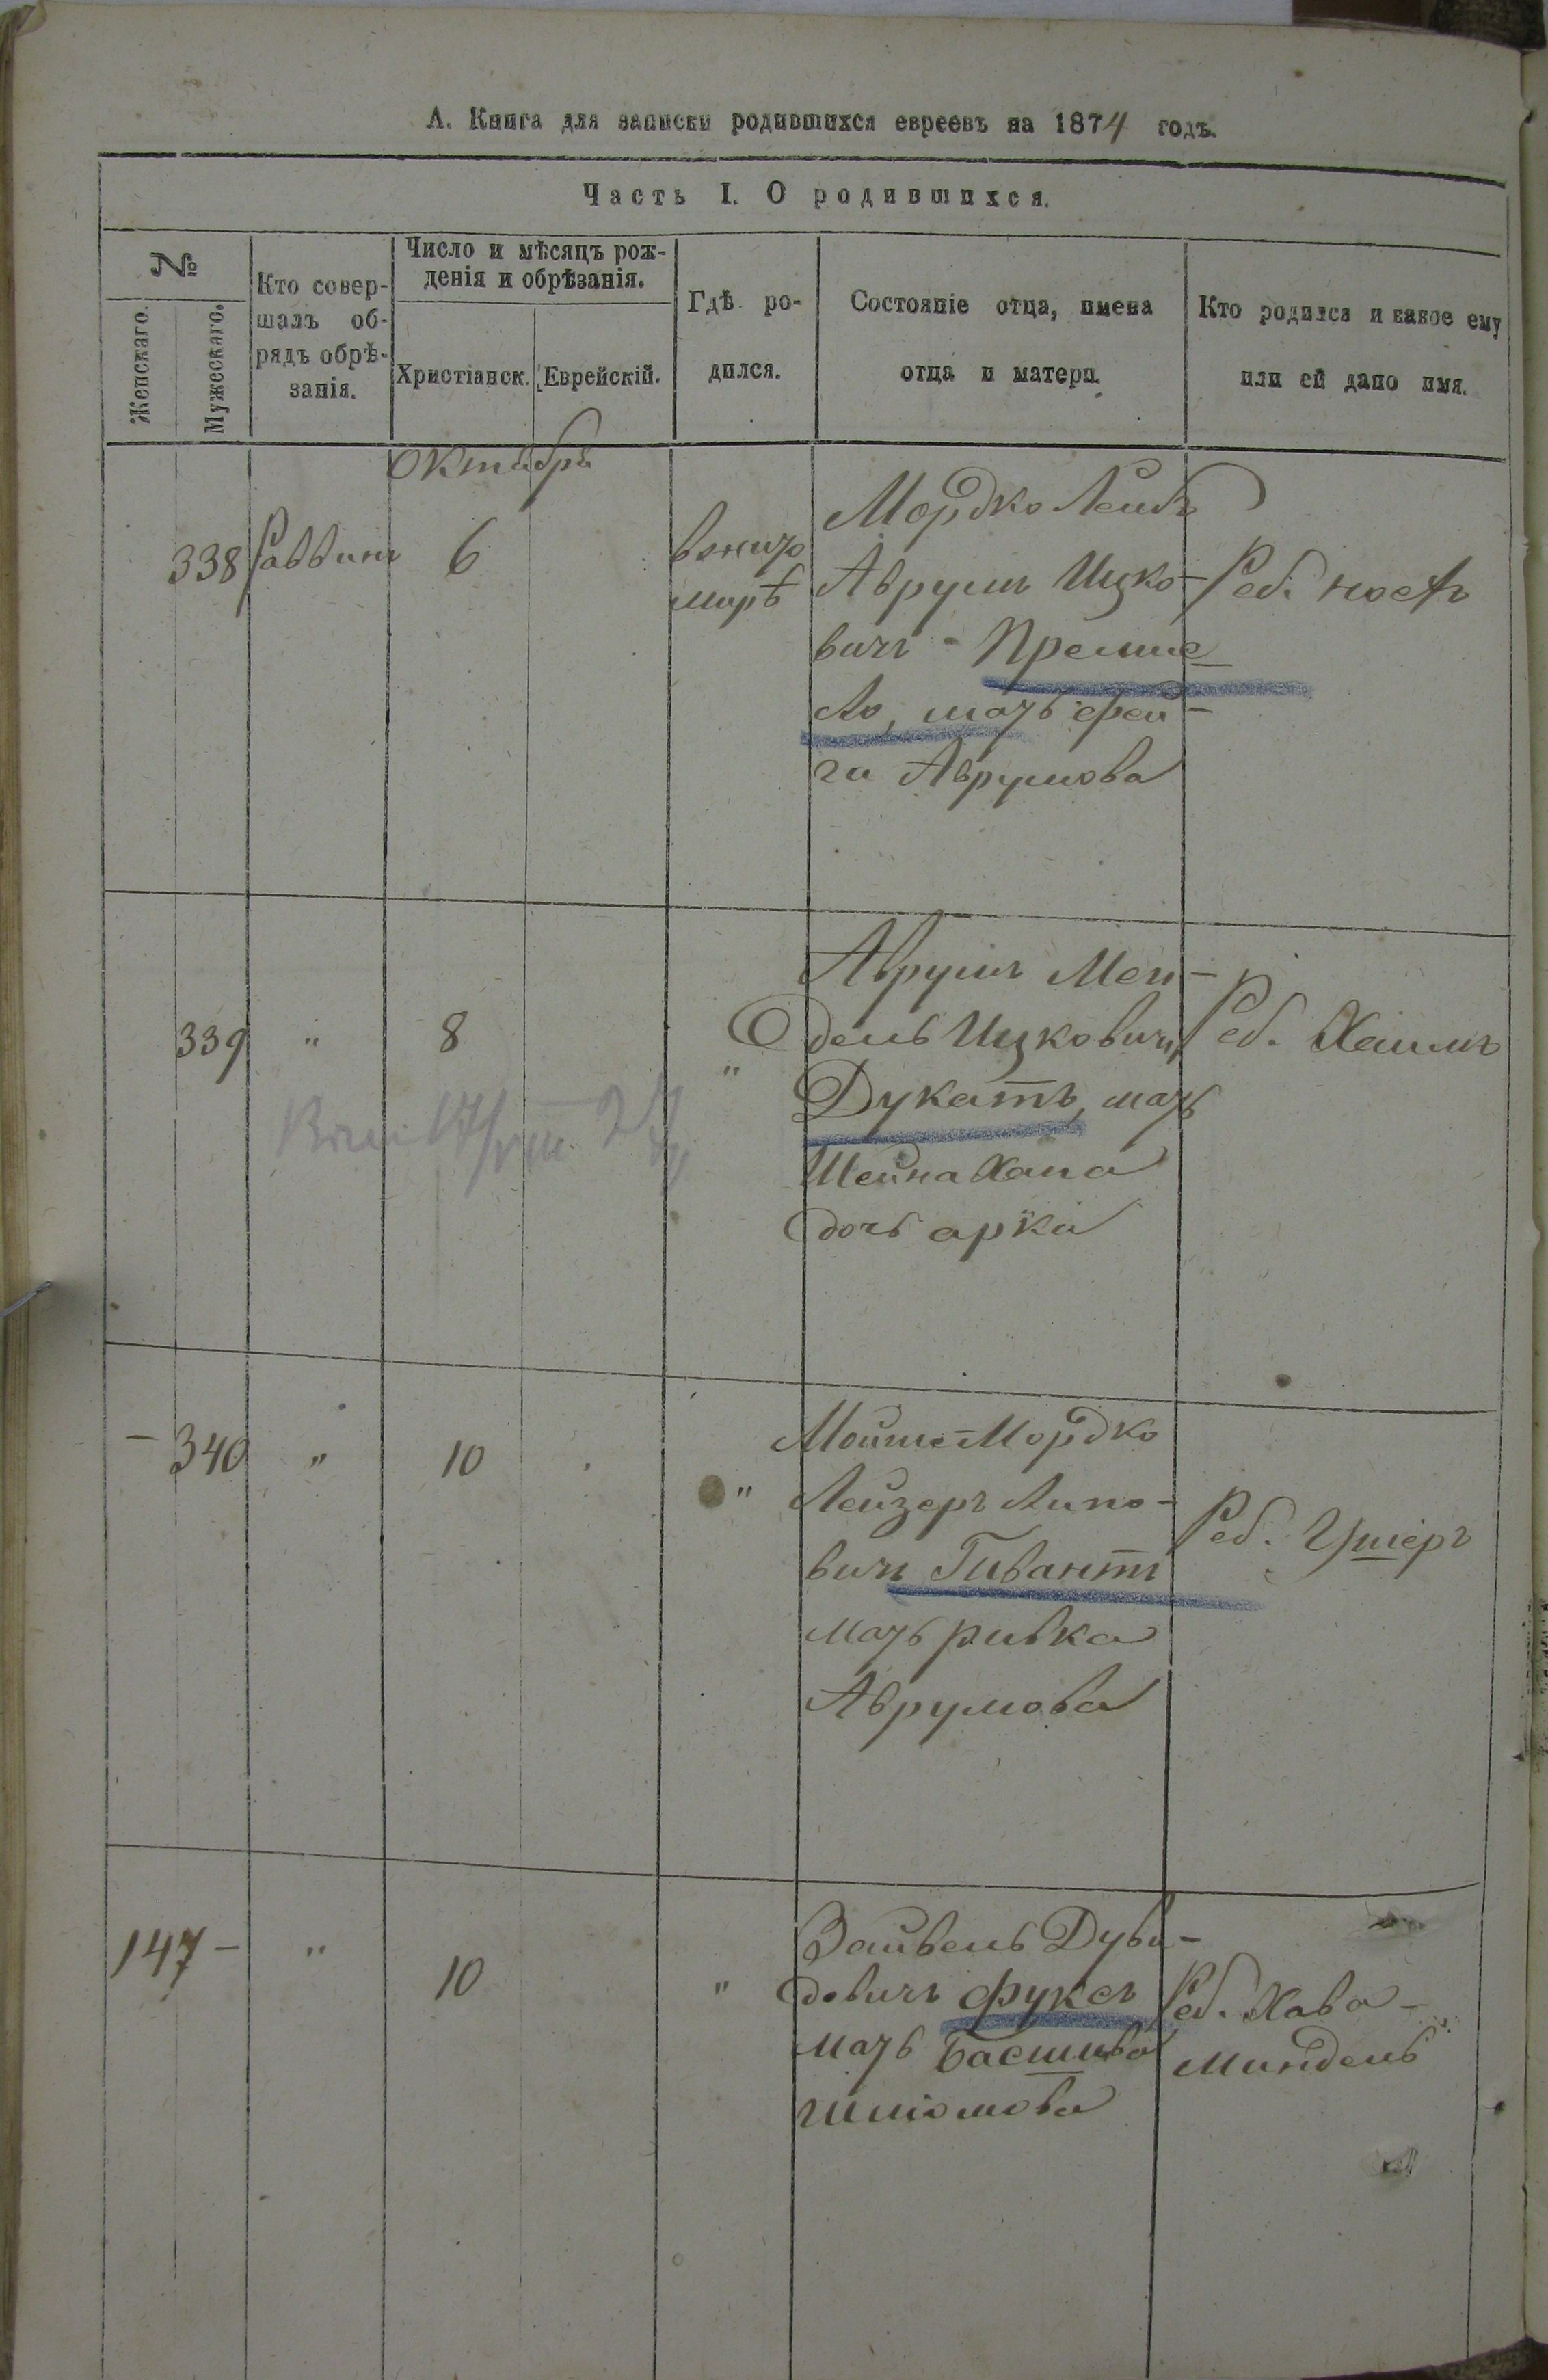 А. Книга для записки родившихся евреевъ на 1874 годъ.
Часть I. О родившихся.
№
Женскаго.
Мужескаго.
Кто совер-
шалъ об-
рядъ обрѣ-
занія.
Число и мѣсяцъ рож-
денія и обрѣзанія.
Христіанск.
Еврейскій.
Гдѣ ро-
дился.
Состояніе отца, имена
отца и матери.
Кто родился и какое ему
или ей дано имя.
Октября
338
Раввинъ
6
вжито
мирѣ
Мордко Лейбъ
Аврумъ Ицко-
вичъ - Премис
ло, мать Фей-
га Аврумова
Реб.
339
"
8
"
Аврумъ Мен-
дель Ицковичъ
Дукатъ, мать
Шейна Хана
дочь арки
Реб. Хаимъ
- 340
"
10
"
Мойше-Мордко
Лейзеръ Липо-
вичъ Гивантъ
мать ривка
Аврумова
Реб. Ушеръ
147 -
"
10
"
Зайвель Дуви-
довичъ Фуксъ
мать Басшива
Шліомова
Реб. Хава-
Миндель